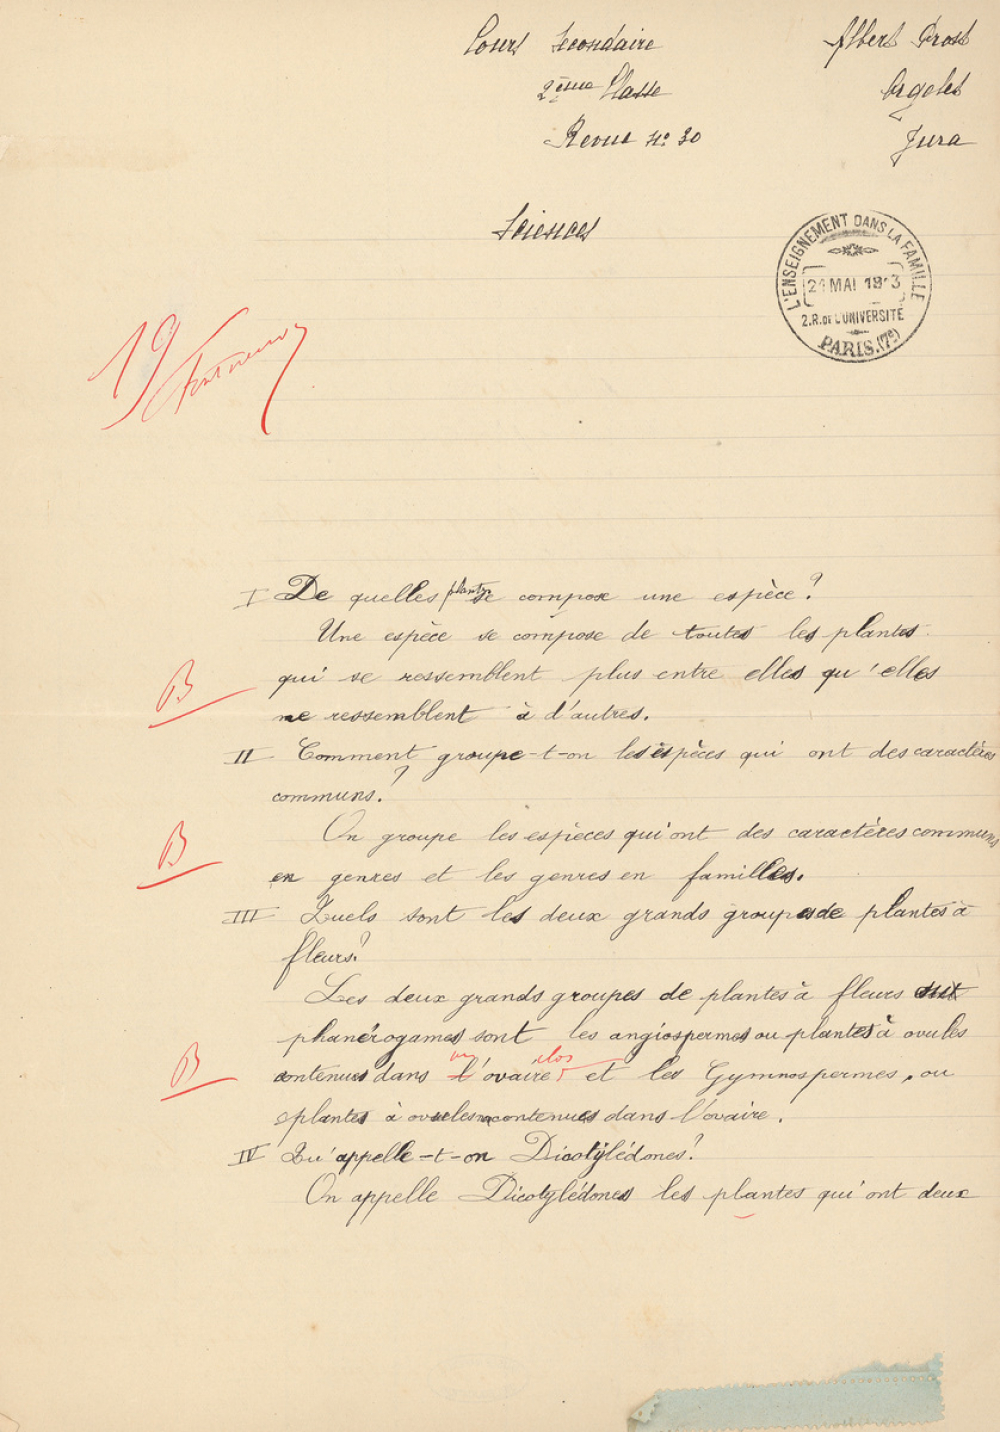 Cours Secondaire
Albert Prost
2ème Classe
Orgelet
Revue No 30
Jura
Sciences
L'ENSEIGNEMENT DANS LA FAMILLE
21 MAI 1913
2.R. DE L'UNIVERSITÉ
PARIS.(7e)
19
I De quelles plantes se compose une espèce?
Une espèce se compose de toutes les plantes
qui se ressemblent plus entre elles qu'elles
B
ne ressemblent à d'autres.
II Comment groupe-t-on les espèces qui ont des caractères
communs.?
On groupe les espèces qui ont des caractères communs
B
en genres et les genres en familles.
III Quels sont les deux grands groupes de plantes à
fleurs?
Les deux grands groupes de plantes à fleurs
phanérogames sont les angiospermes ou plantes à ovules
un clos
B
contenues dans l'ovaire et les Gymnospermes, ou
plantes à ovules non contenues dans l'ovaire.
IV Qu'appelle-t-on Dicotylédones?
On appelle Dicotylédones les plantes qui ont deux